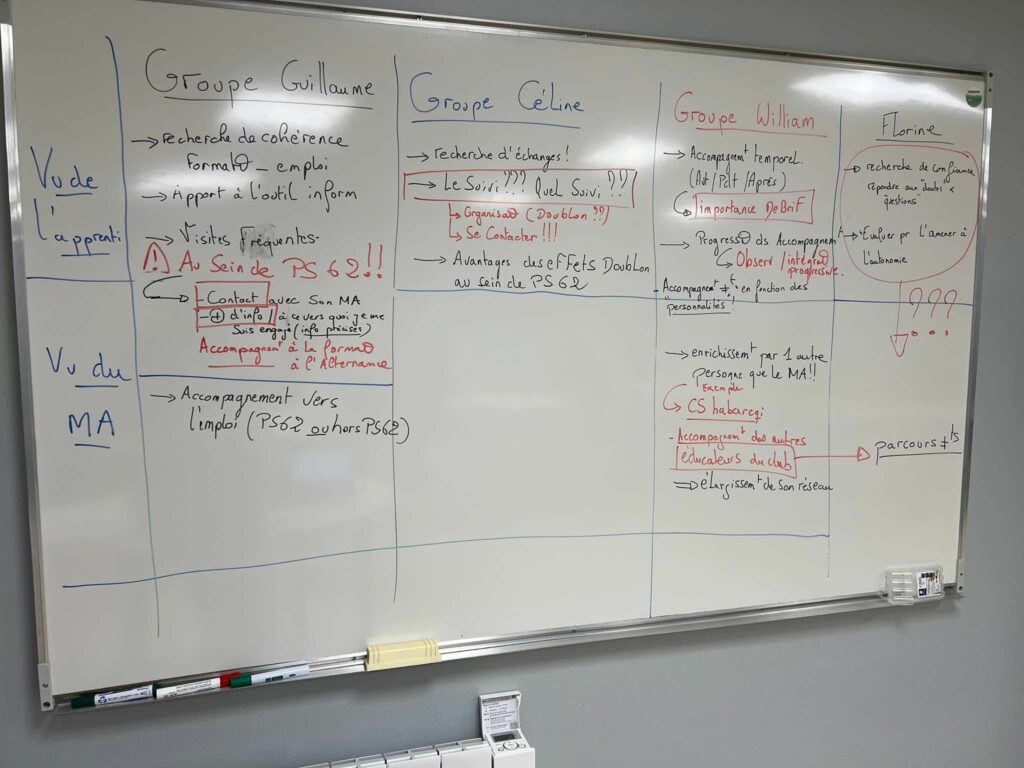 Vu de
l'apprenti
Groupe Guillaume
→ recherche de cohérence
Format° - emploi
→ Apport à l'outil inform
→ Visites Fréquentes-
⚠ Au Sein de PS 62!!
- Contact avec Son MA
- ⊕ d'info / à ce vers quoi je me
suis engagé (info précises)
Accompagnt à la format°
à l'Alternance
Groupe Céline
→ recherche d'échanges!
→ Le Suivi??? Quel Suivi??
↳ Organisat° (Doublon??)
↳ Se Contacter!!!
→ Avantages des effets Doublon
au sein de PS62
Groupe William
→ Accompagnt temporel.
(Avt/Pdt/Après)
l'importance DeBriF
→ Progress° ds Accompagnem
Observ / intégrat°
progressive.
- Accompagnt ≠ts en fonction des
personnalités!
Florine
• recherche de confiance
répondre aux "doutes &
questions"
• Évaluer pr l'amener à
l'autonomie
???
Vu du
MA
→ Accompagnement vers
l'emploi (PS62 ou hors PS62)
→ enrichissemt par 1 autre
personne que le MA!!
Exemple
CS habarcqi
- Accompagnmt des autres
éducateurs du club
⇒ élargissemt de son réseau
parcours ≠ts